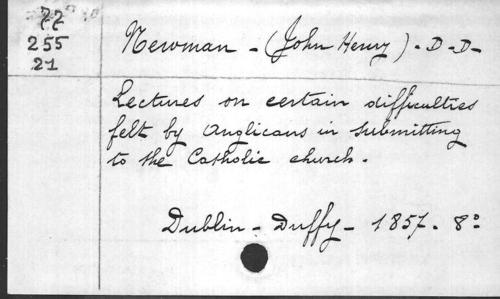 " 77 "
255
21
Newman - (John Henry). D-D-
Lectures on certain difficulties
felt by Anglicans in submitting
to the Catholic church.
Dublin - Duffy - 1857. 8º